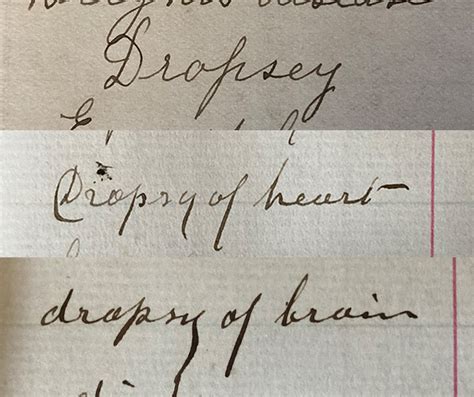 disease
Dropsey
Dropsy of heart
dropsy of brain